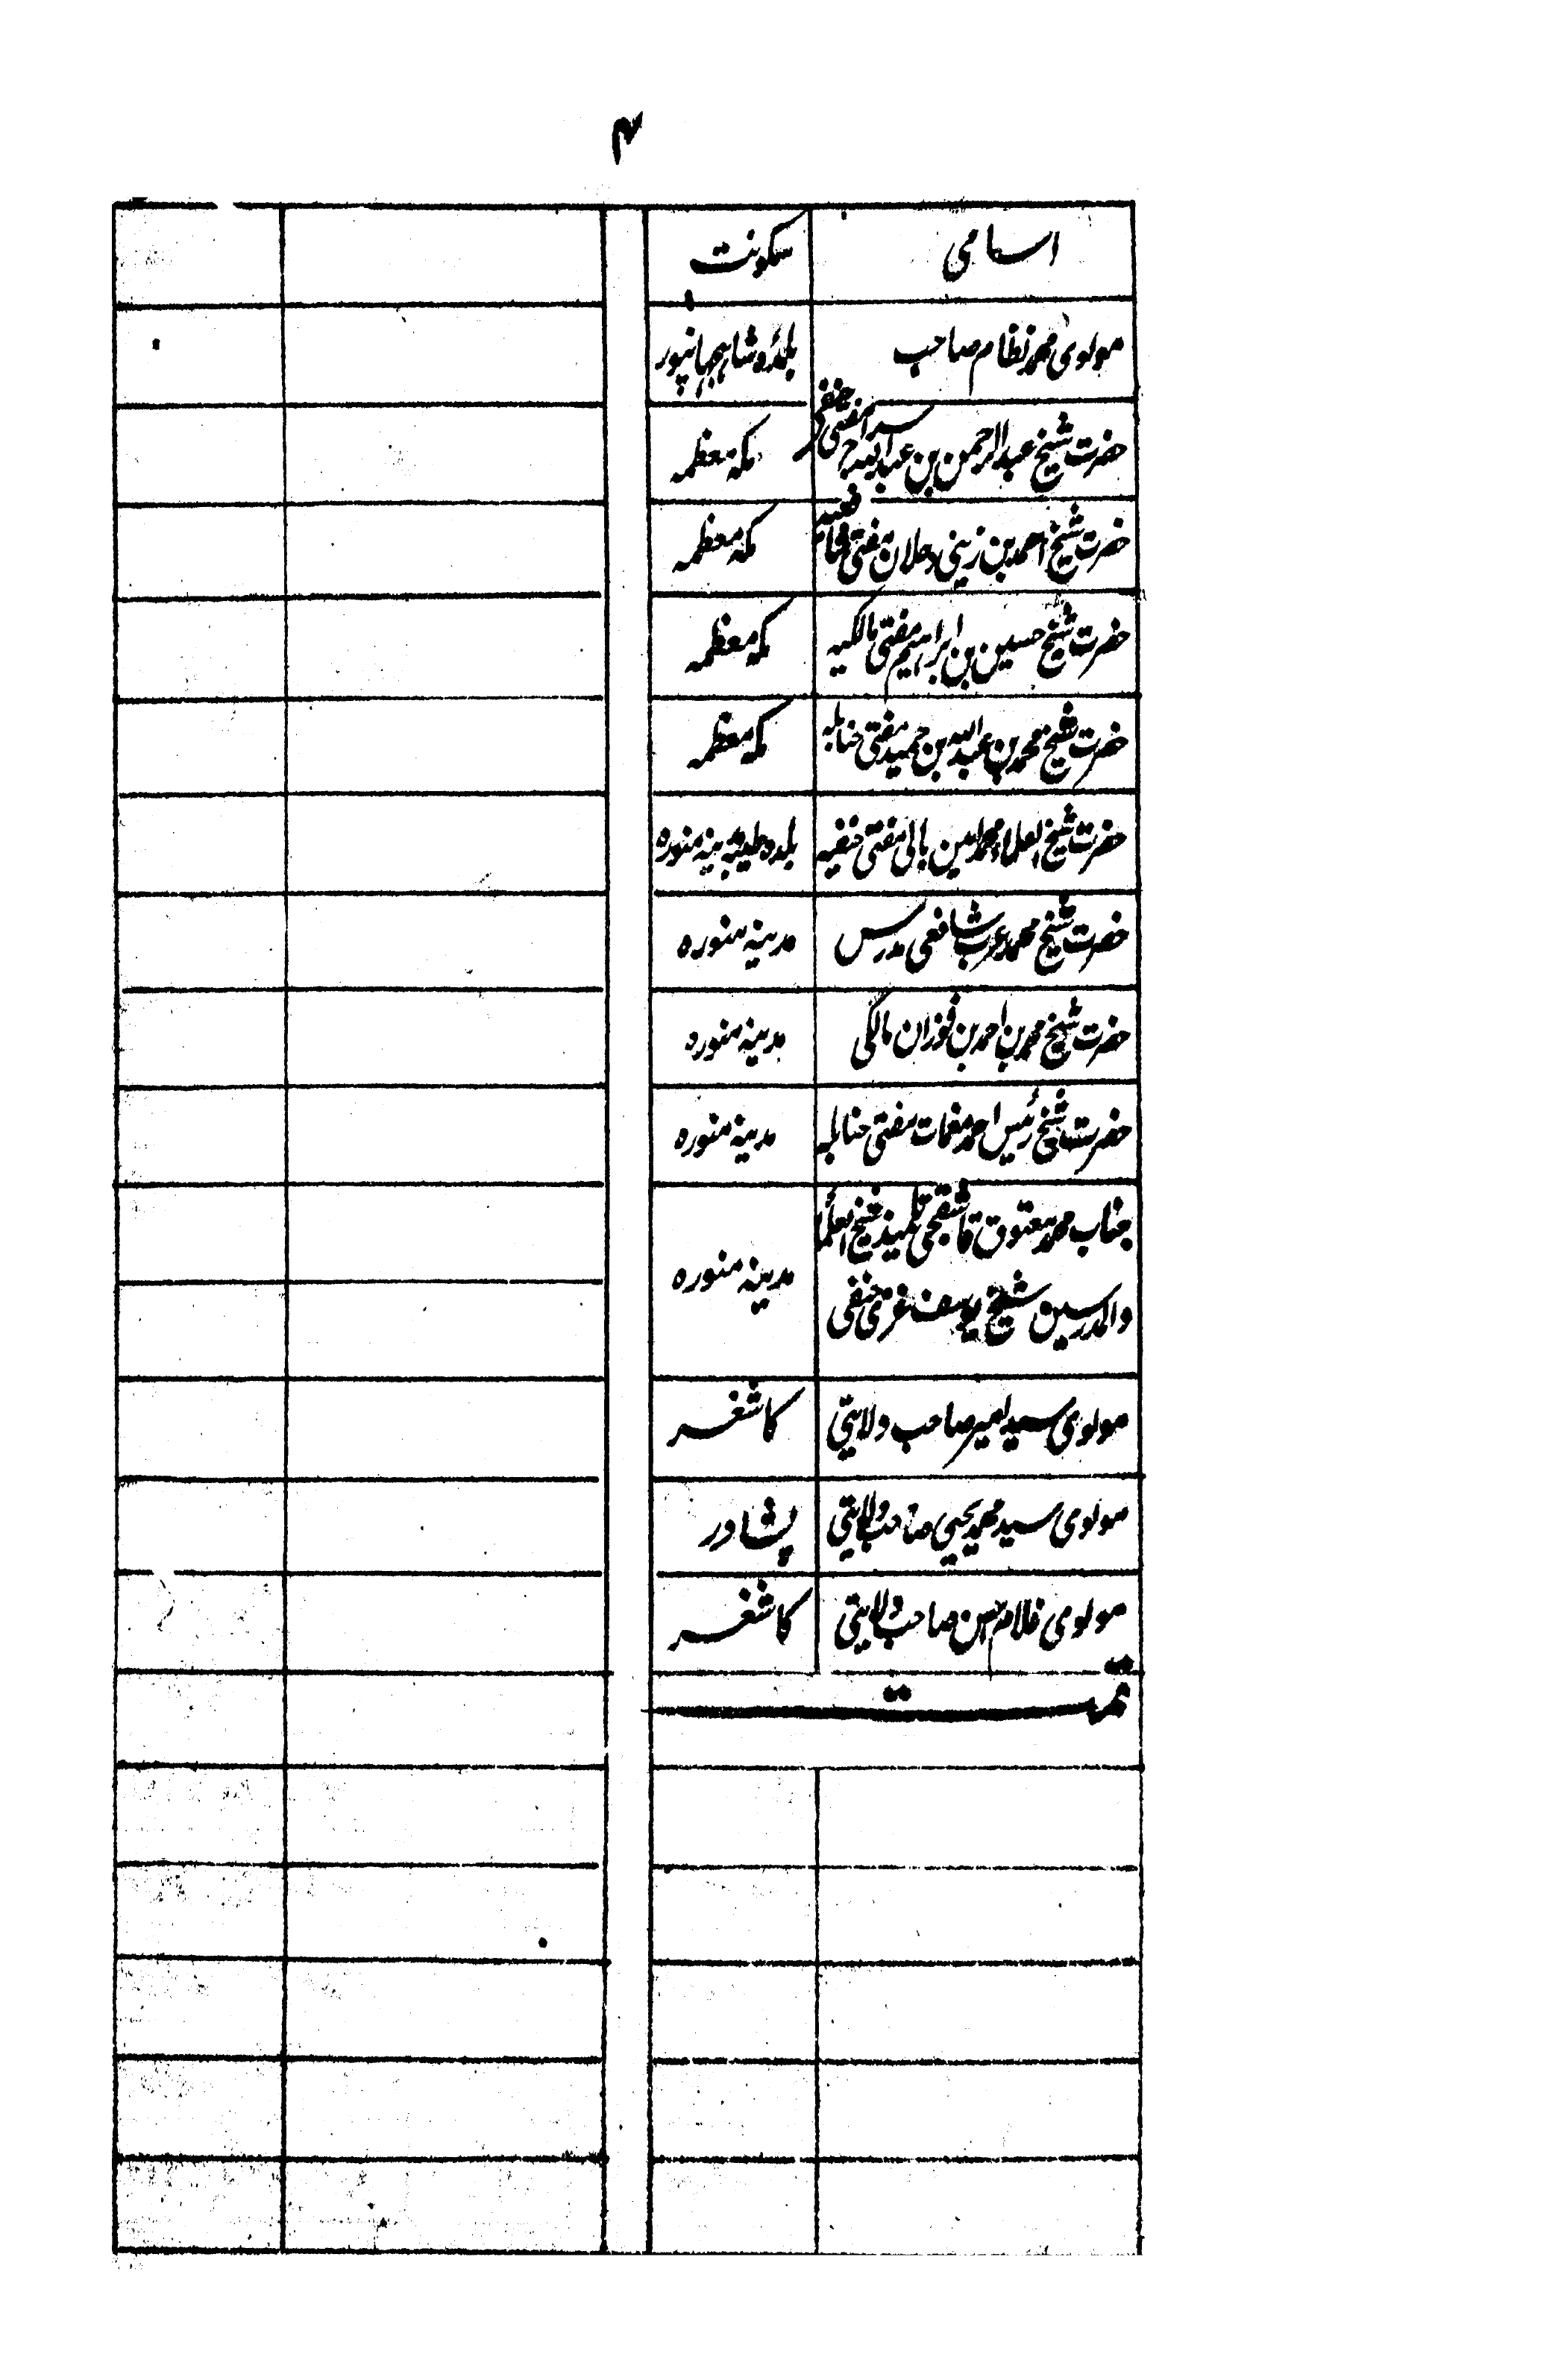 ۴
اسامی سکونت
مولوی محمد نظام صاحب بلدۂ شاہجہانپور
حضرت شیخ عبد الرحمن بن عبد اللہ سراج مفتی حنفیہ مکہ معظمہ
حضرت شیخ احمد بن زینی دحلان مفتی شافعیہ مکہ معظمہ
حضرت شیخ حسین بن ابراہیم مفتی مالکیہ مکہ معظمہ
حضرت شیخ محمد بن عبد اللہ بن حمید مفتی حنابلہ مکہ معظمہ
حضرت شیخ العلماء محمد امین بالی مفتی حنفیہ بلدہ طیبہ مدینہ منورہ
حضرت شیخ محمد عرب شافعی مدرس مدینہ منورہ
حضرت شیخ محمد بن احمد بن فوزان مالکی مدینہ منورہ
حضرت شیخ رئیس احمد مفتی حنابلہ مدینہ منورہ
جناب محمد معتوق تلمیذ شیخ العلما
والمدرسین شیخ یوسف غزی حنفی مدینہ منورہ
مولوی سید امیر صاحب ولایتی کاشغر
مولوی سید محمد یحیی صاحب ولایتی پشاور
مولوی غلام صاحب ولایتی کاشغر
تمت